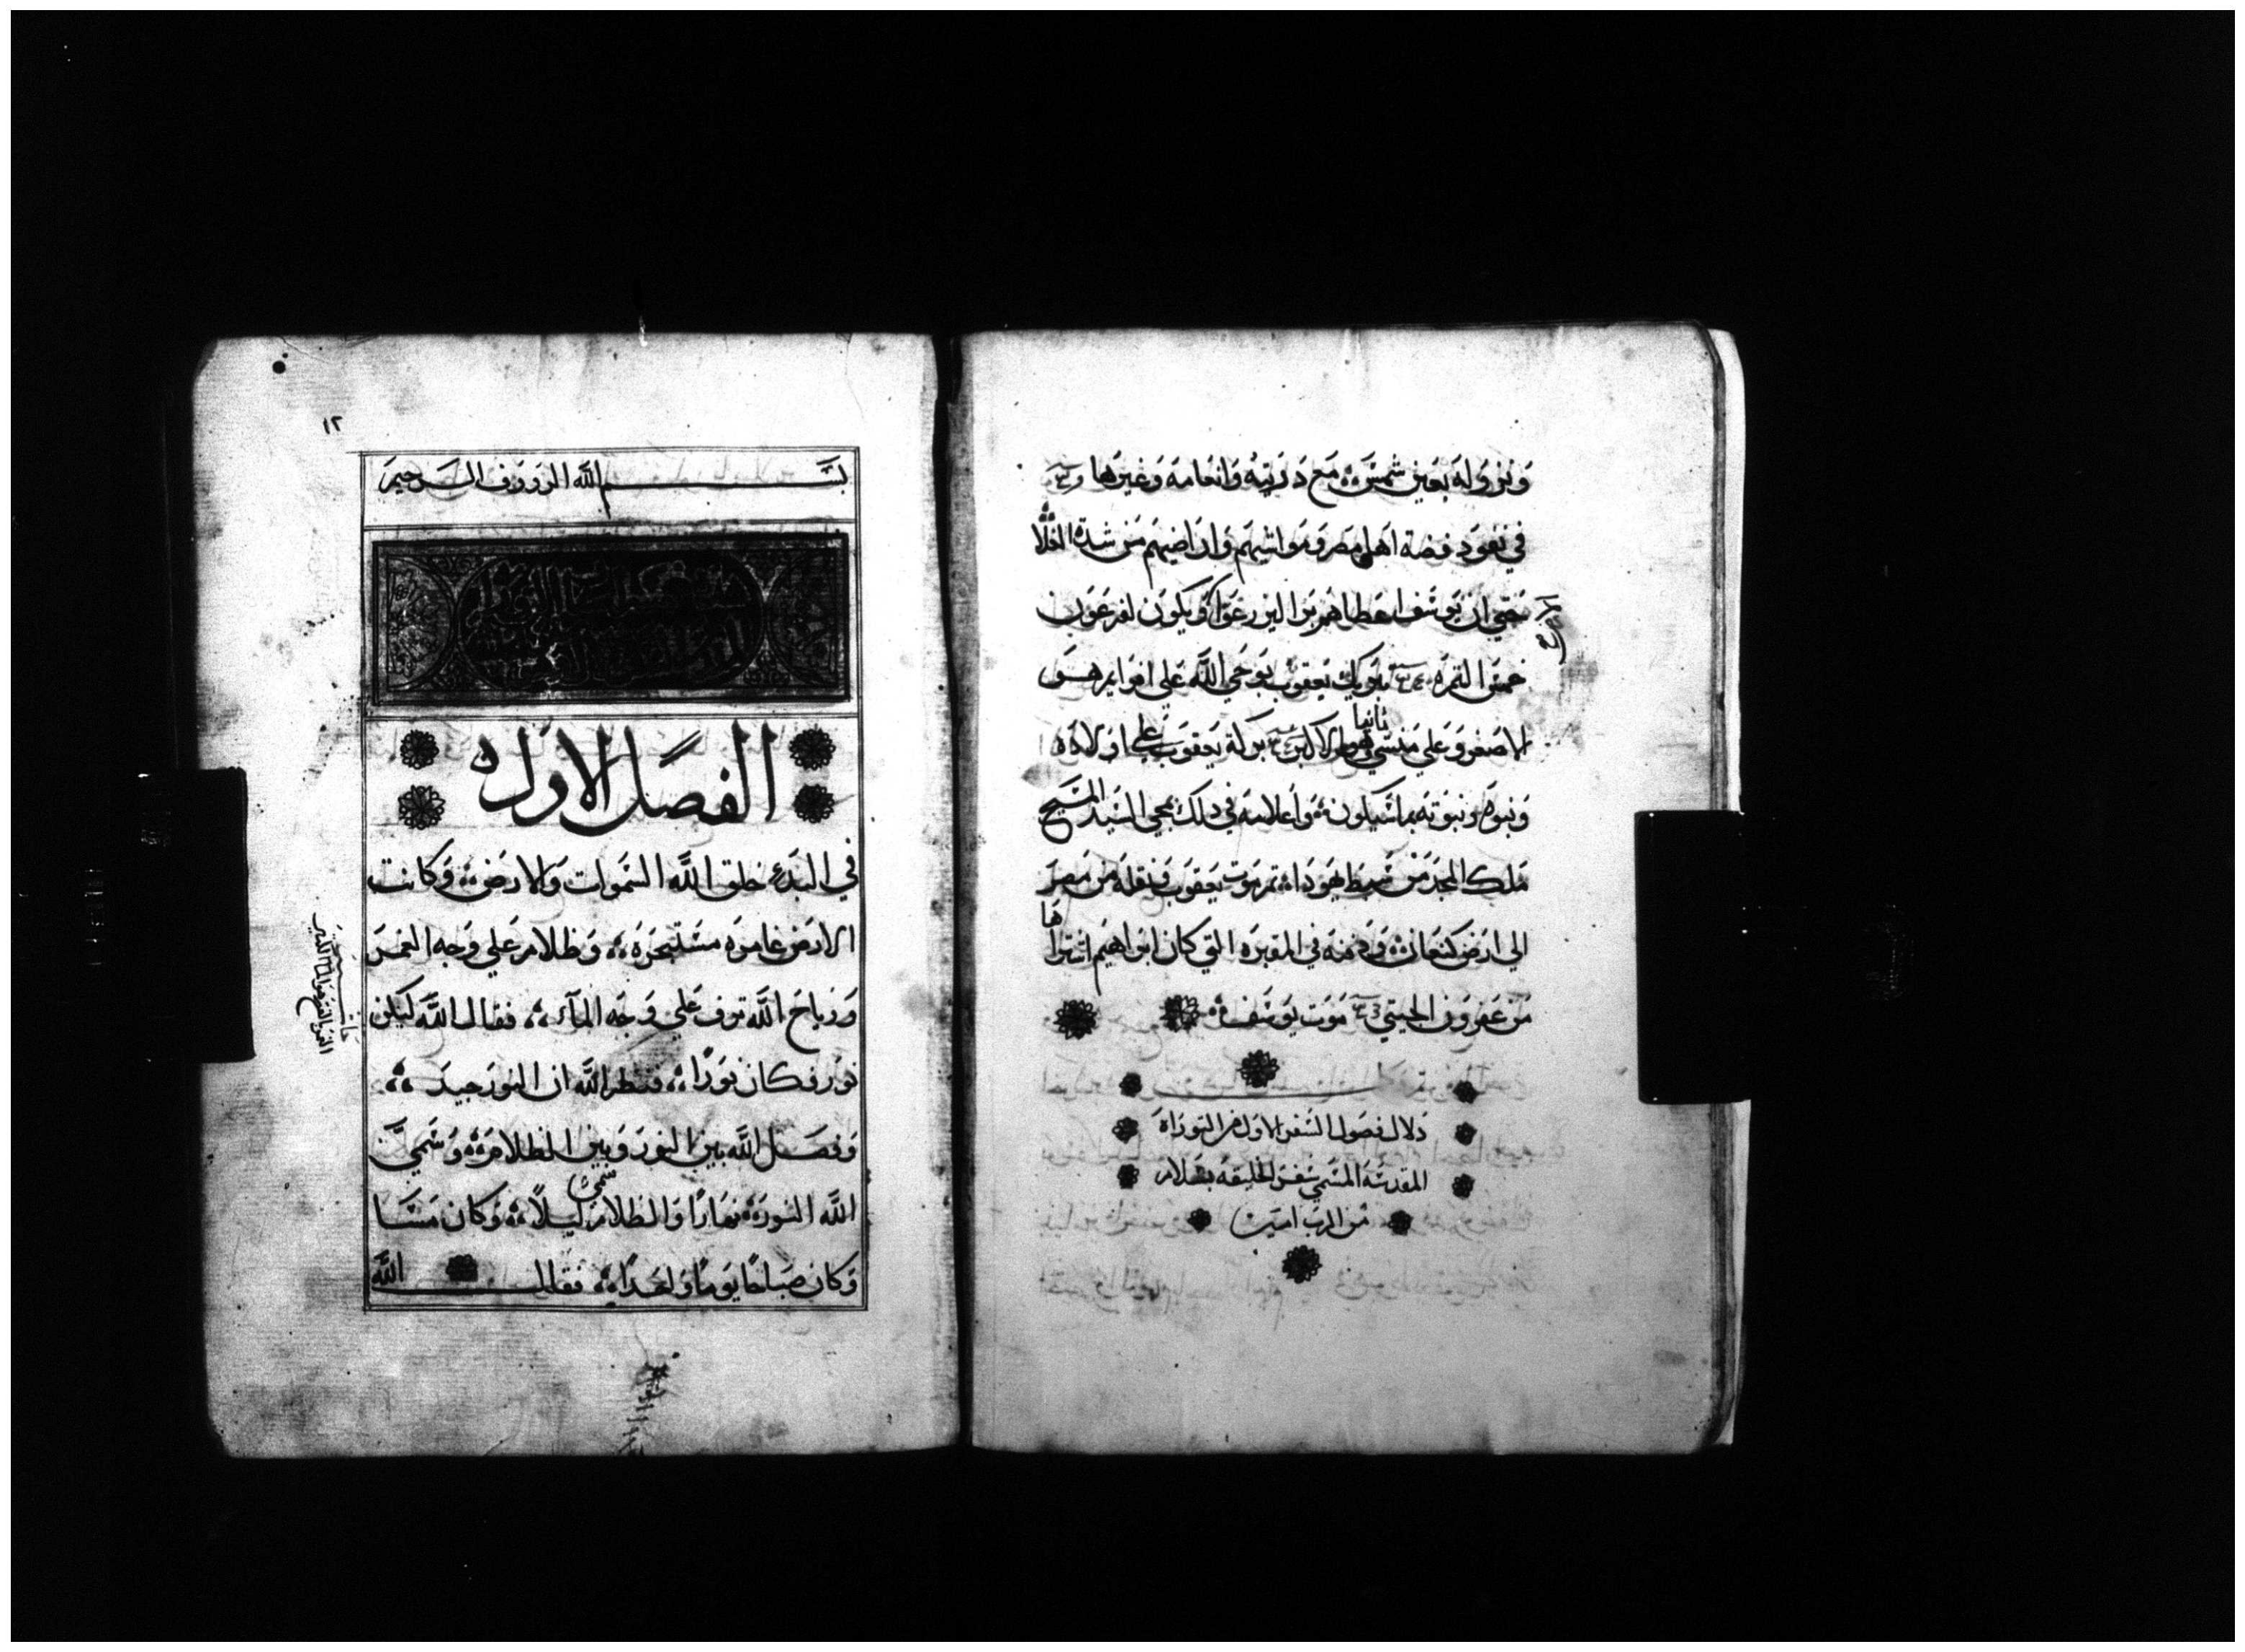 ونزوله بعين شمس مع ذريته وانعامه وغيرها
في نفود فضة اهل مصر ومواشيهم واراضيهم من شدة الغلا
حتي ان يوسف اعطاهم بزرا ليزرعوا ويكون لفرعون
خمس الثمره تبريك يعقوب بوحي الله علي افرايم هو
الاصغر وعلي منسي ثانيا وهو الاكبر بركة يعقوب علي اولاده
ونبوه ونبوته بما سيكون واعلامه في دلك بمجي السيد المسيح
ملك المجد من سبط يهودا تم موت يعقوب ونقله من مصر
الي ارض كنعان ودفنه في المقبره التي كان ابراهيم اشتراها
من عفرون الحيتي موت يوسف
دلال فصول السفر الاول من التوراة
المقدسه المسمي سفر الخليقه بسلام
من الرب امين
١٢
بسم الله الرووف الرحيم
الفصل الاول
في البدء خلق الله السموات والارض وكانت
الارض غامره مستبحره وظلام علي وجه الغمر
ورياح الله ترف علي وجه المآء فقال الله ليكن
نور فكان نورًا فنظر الله ان النور جيد
وفصل الله بين النور وبين الظلام وسمي
الله النور نهارًا والظلام سمي ليلًا وكان مسا
وكان صباحًا يومًا واحدًا فقال الله